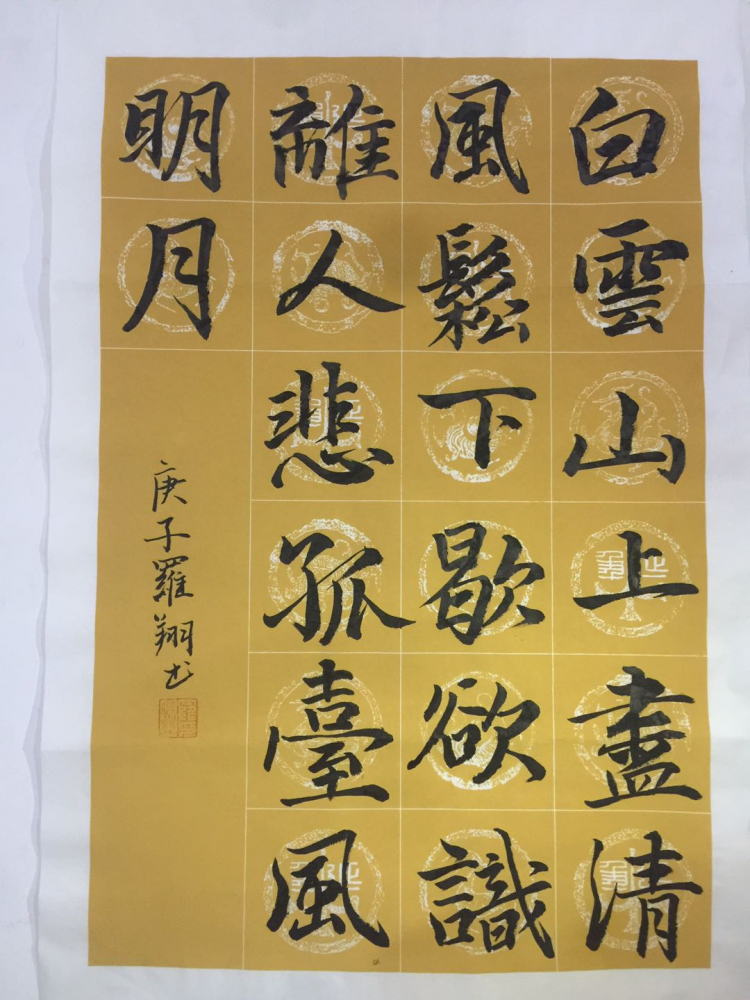 白雲山上盡清
風鬆下歇欲識
離人悲孤臺風
明月
庚子羅翔书